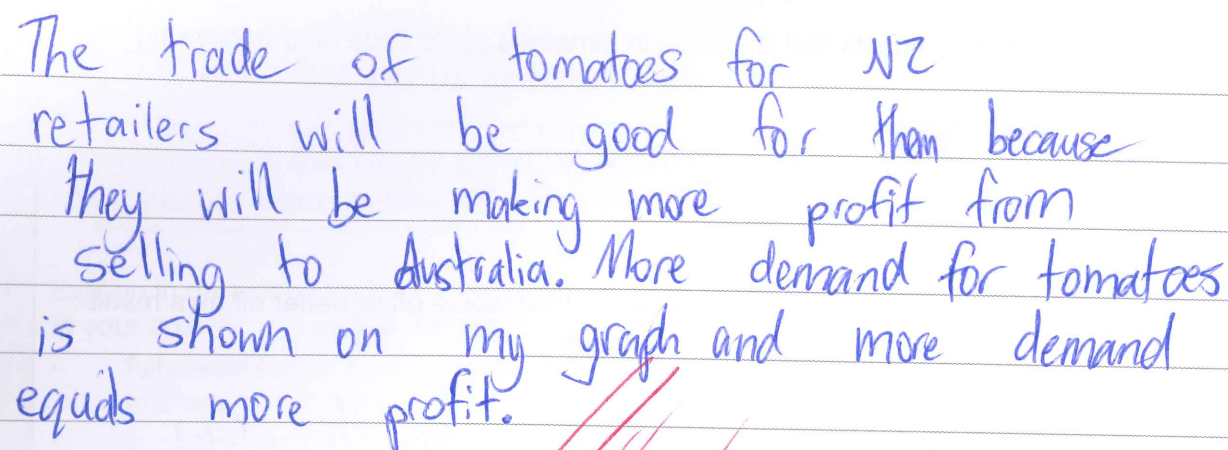 The trade of tomatoes for NZ
retailers will be good for them because
they will be making more profit from
selling to Australia. More demand for tomatoes
is shown on my graph and more demand
equals more profit.